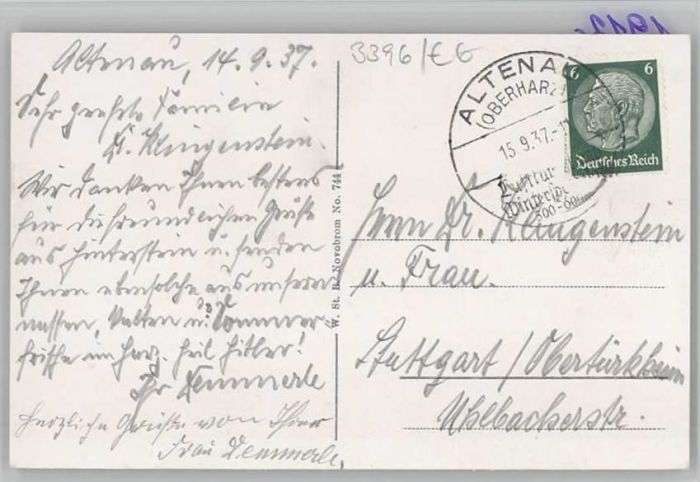 Altenau, 14.9.37.
Sehr geehrte Familie
Dr. Klingenstein.
Wir danken Ihnen bestens
für die freundlichen Grüße
aus Hinterstein u. senden
Ihnen ebensolche aus unserer
nassen, kalten u. Sommer-
frische im Harz. Heil Hitler!
Ihr Demmerle
Herzliche Grüße von Ihrer
Frau Demmerle.
W. St. B. Novabrom No. 744
3396/EG
ALTENAU
(OBERHARZ)
15.9.37.-1
Luftkur
Winterspo
300-60
6 6
Deutsches Reich
Herrn Dr. Klingenstein
u. Frau.
Stuttgart/Obertürkheim
Uhlbacherstr.